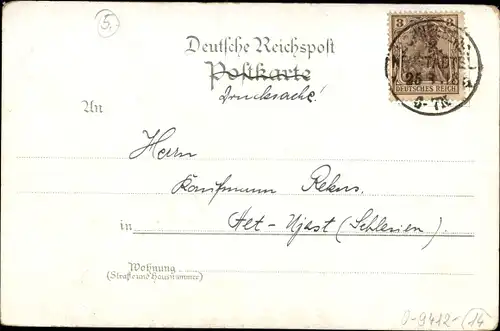 5.
Deutsche Reichspost
Postkarte
Drucksache!
3 3
DEUTSCHES REICH
6-7N.
An
Herrn
Kaufmann
in
(Schlesien)
Wohnung
(Straße und Hausnummer)
0-9412-(14)